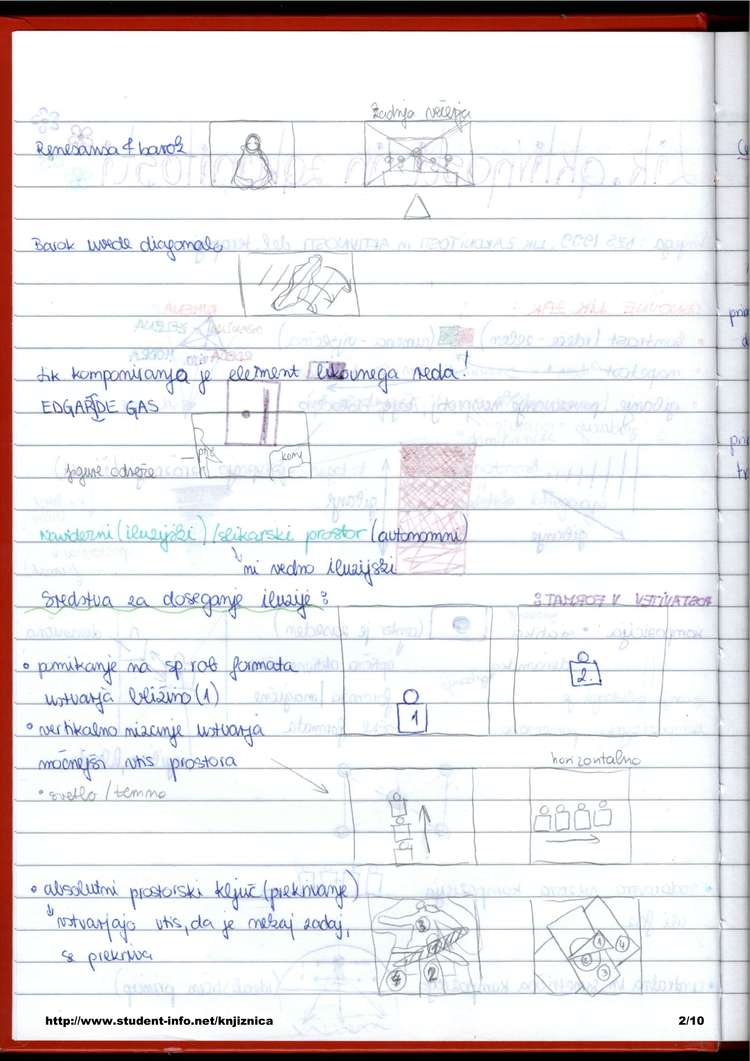 Zadnja večerja
Renesansa & barok
Barok uvede diagonalo
Lik. komponiranja je element likovnega reda!
EDGAR DE GAS
konj
figure odreže
Navidezni (iluzijski) / slikarski prostor (avtonomni)
ni vedno iluzijski
Sredstva za doseganje iluzije:
• pomikanje na sp. rob formata
ustvarja bližino (1)
1
2.
• vertikalno nizanje ustvarja
močnejši vtis prostora
horizontalno
• svetlo / temno
• absolutni prostorski ključ (prekrivanje)
ustvarjajo vtis, da je nekaj zadaj,
se prekriva
3
1
4
2
1
4
2
3
http://www.student-info.net/knjiznica
2/10